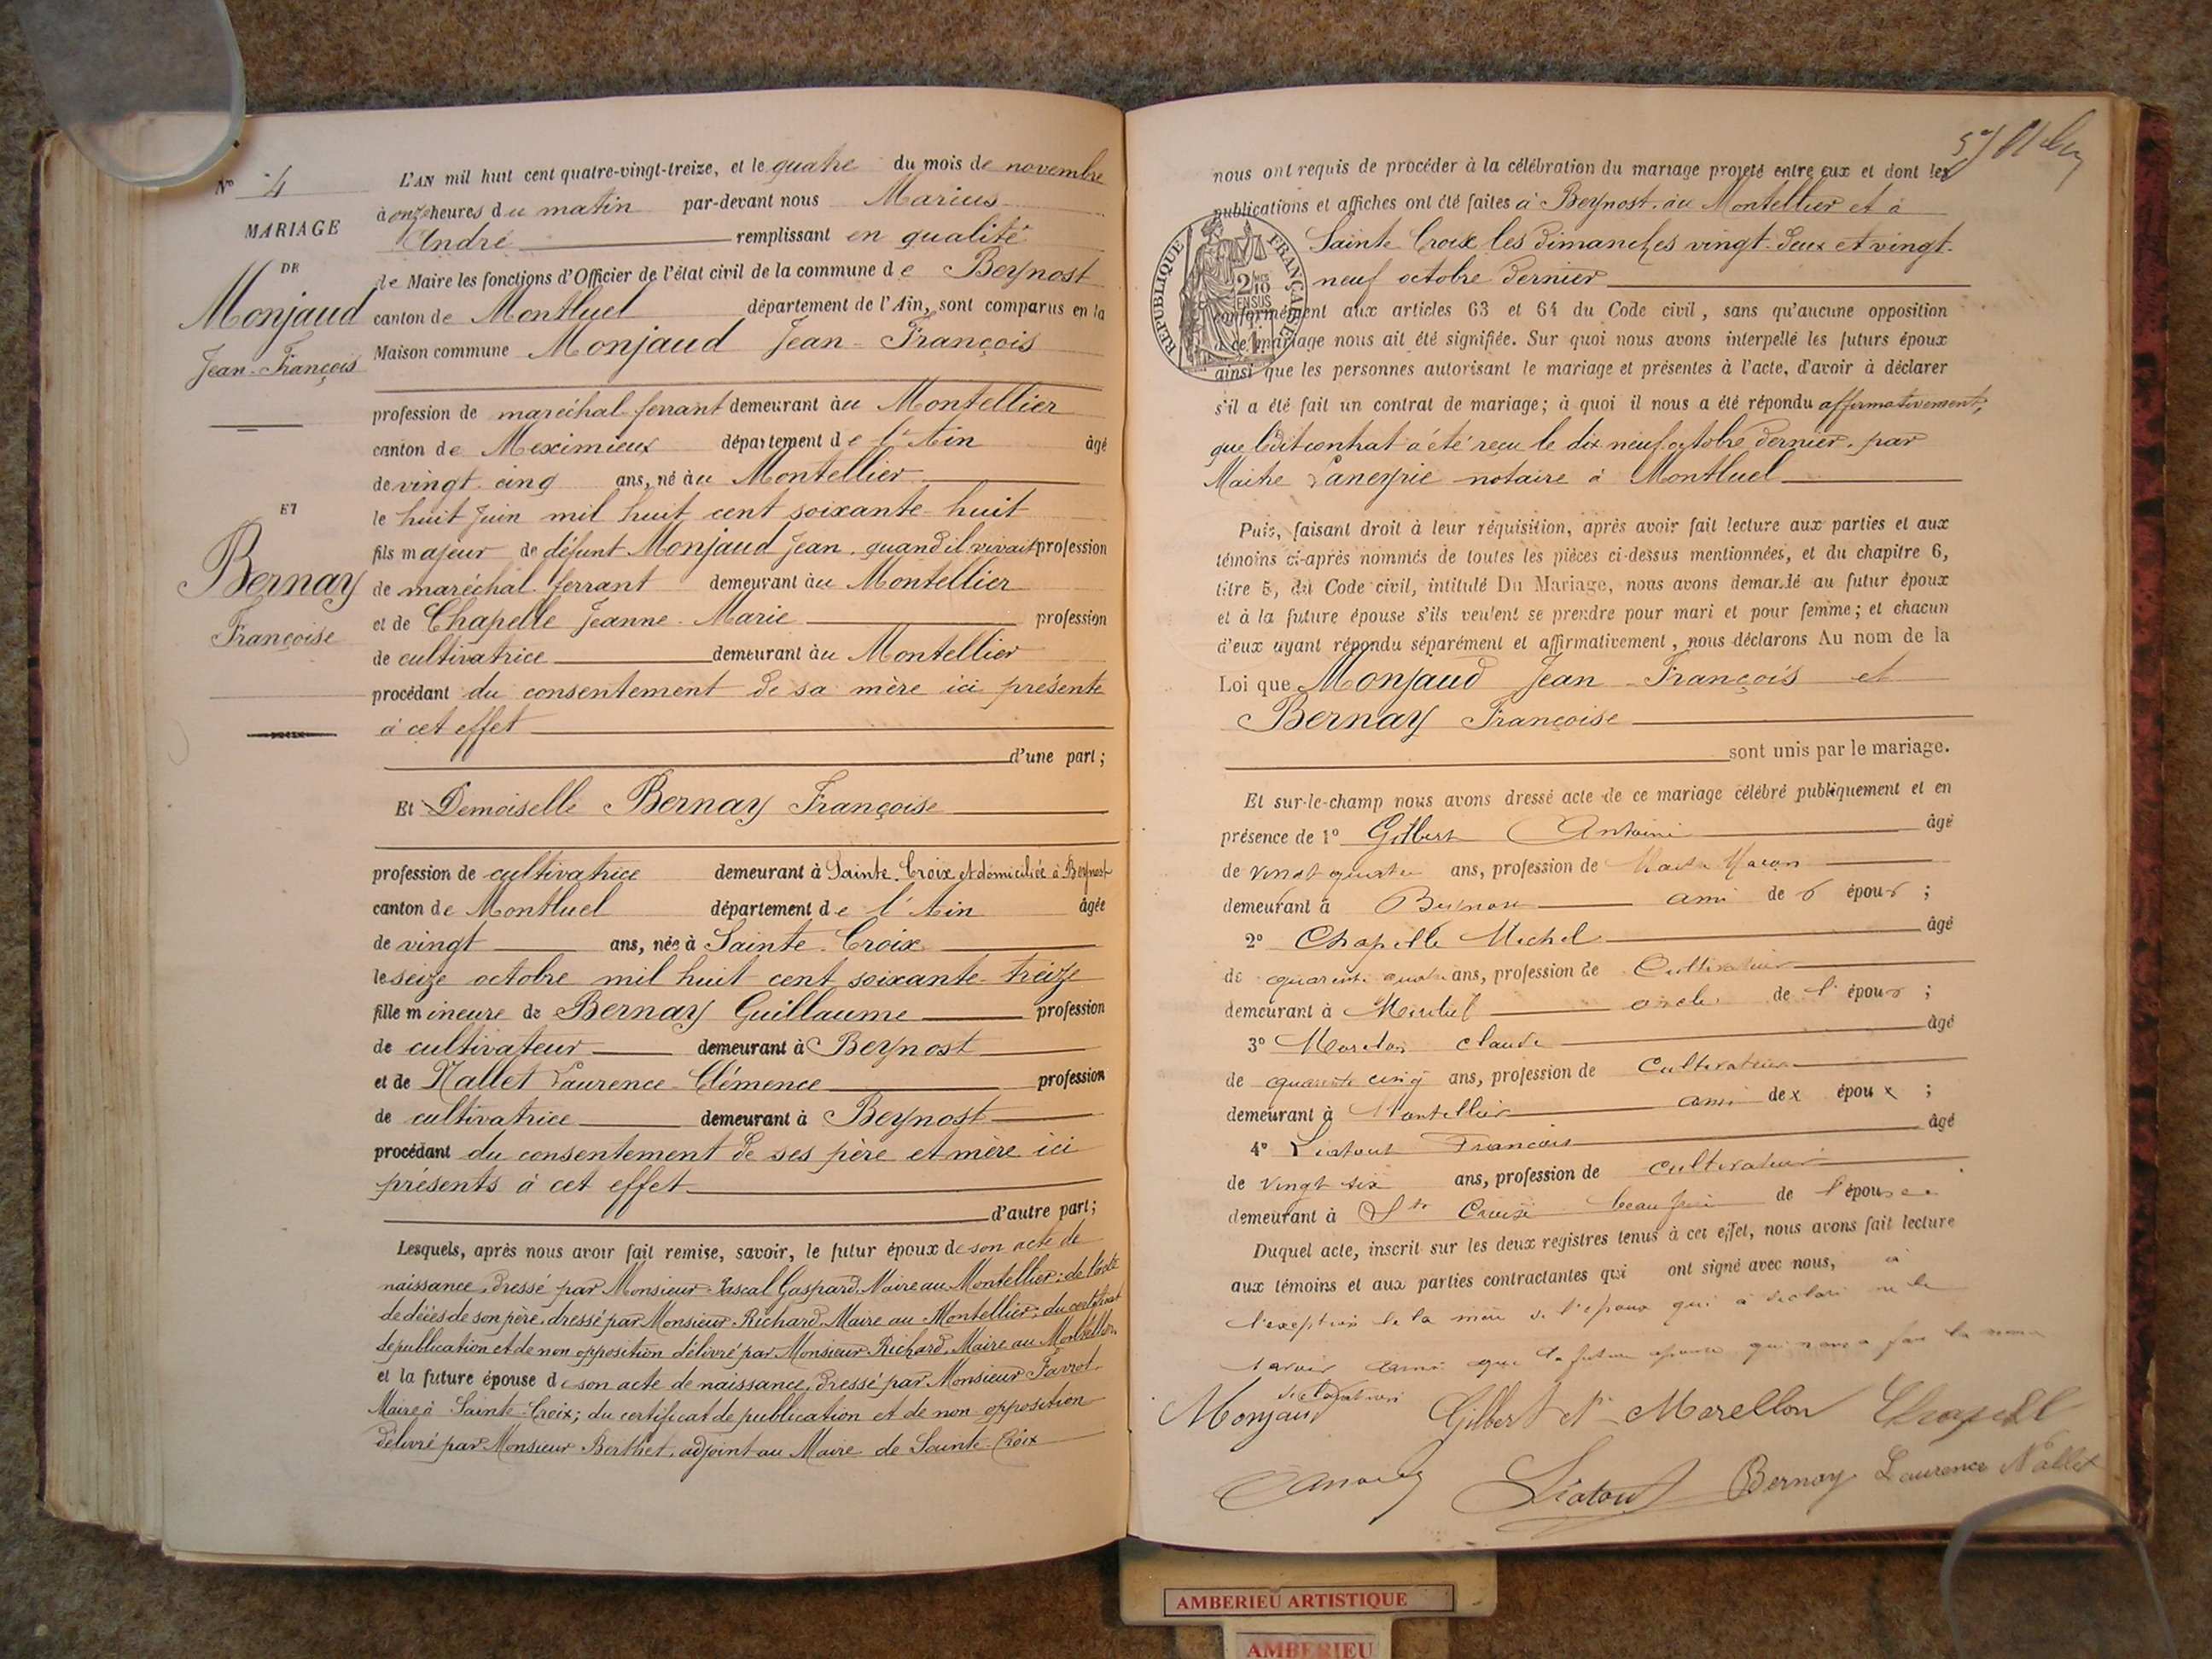 N° 4
MARIAGE
DE
Monjaud
Jean-François
ET
Bernay
Françoise
L'AN mil huit cent quatre-vingt-treize, et le quatre du mois de novembre
à onze heures du matin par-devant nous Marius
André remplissant en qualité
de Maire les fonctions d'Officier de l'état civil de la commune de Beynost
canton de Montluel département de l'Ain, sont comparus en la
Maison commune Monjaud Jean-François
profession de maréchal-ferrant demeurant au Montellier
canton de Meximieux département de l'Ain âgé
de vingt cinq ans, né au Montellier
le huit juin mil huit cent soixante-huit
fils majeur de défunt Monjaud Jean, quand il vivait profession
de maréchal ferrant demeurant au Montellier
et de Chapelle Jeanne-Marie profession
de cultivatrice demeurant au Montellier
procédant du consentement de sa mère ici présente
à cet effet
d'une part;
Et Demoiselle Bernay Françoise
profession de cultivatrice demeurant à Sainte-Croix et domiciliée à Beynost
canton de Montluel département de l'Ain âgée
de vingt ans, née à Sainte-Croix
le seize octobre mil huit cent soixante-treize
fille mineure de Bernay Guillaume profession
de cultivateur demeurant à Beynost
et de Nallet Laurence-Clémence profession
de cultivatrice demeurant à Beynost
procédant du consentement de ses père et mère ici
présents à cet effet
d'autre part;
Lesquels, après nous avoir fait remise, savoir, le futur époux de son acte de
naissance, dressé par Monsieur Pascal Gaspard, Maire au Montellier; de l'acte
de décès de son père, dressé par Monsieur Richard, Maire au Montellier; du certificat
de publication et de non opposition délivré par Monsieur Richard, Maire au Montellier,
et la future épouse de son acte de naissance, dressé par Monsieur Favrot
Maire à Sainte-Croix; du certificat de publication et de non opposition
délivré par Monsieur Berthet, adjoint au Maire de Sainte-Croix
nous ont requis de procéder à la célébration du mariage projeté entre eux et dont les
publications et affiches ont été faites à Beynost, au Montellier et à
Sainte-Croix les dimanches vingt-deux et vingt-
neuf octobre dernier
RÉPUBLIQUE FRANÇAISE
conformément aux articles 63 et 64 du Code civil, sans qu'aucune opposition
à ce mariage nous ait été signifiée. Sur quoi nous avons interpellé les futurs époux
ainsi que les personnes autorisant le mariage et présentes à l'acte, d'avoir à déclarer
s'il a été fait un contrat de mariage; à quoi il nous a été répondu affirmativement,
que ledit contrat a été reçu le dix-neuf octobre dernier, par
Maître Laneyrie notaire à Montluel
Puis, faisant droit à leur réquisition, après avoir fait lecture aux parties et aux
témoins ci-après nommés de toutes les pièces ci-dessus mentionnées, et du chapitre 6,
titre 5, du Code civil, intitulé Du Mariage, nous avons demandé au futur époux
et à la future épouse s'ils veulent se prendre pour mari et pour femme; et chacun
d'eux ayant répondu séparément et affirmativement, nous déclarons Au nom de la
Loi que Monjaud Jean-François et
Bernay Françoise
sont unis par le mariage.
Et sur-le-champ nous avons dressé acte de ce mariage célébré publiquement et en
présence de 1° Gilbert Antoine âgé
de vingt quatre ans, profession de Macon
demeurant à Beynost ami de époux ;
2° Chapelle Michel âgé
de quarante quatre ans, profession de Cultivateur
demeurant à oncle de l'époux ;
3° Morelon Claude âgé
de quarante cinq ans, profession de Cultivateur
demeurant à Montellier ami de x époux ;
4° Liatout Francois âgé
de vingt six ans, profession de cultivateur
demeurant à Ste Croix beau frère de l'épouse
Duquel acte, inscrit sur les deux registres tenus à cet effet, nous avons fait lecture
aux témoins et aux parties contractantes qui ont signé avec nous, à
l'exeption de la mère de l'époux qui a déclaré ne le
savoir ainsi que la future epouse qui nous a fait la meme
declaration
Monjaud Gilbert Ne Morellon Chapelle
Liatout Bernay Laurence Nallet
AMBERIEU ARTISTIQUE
AMBERIEU